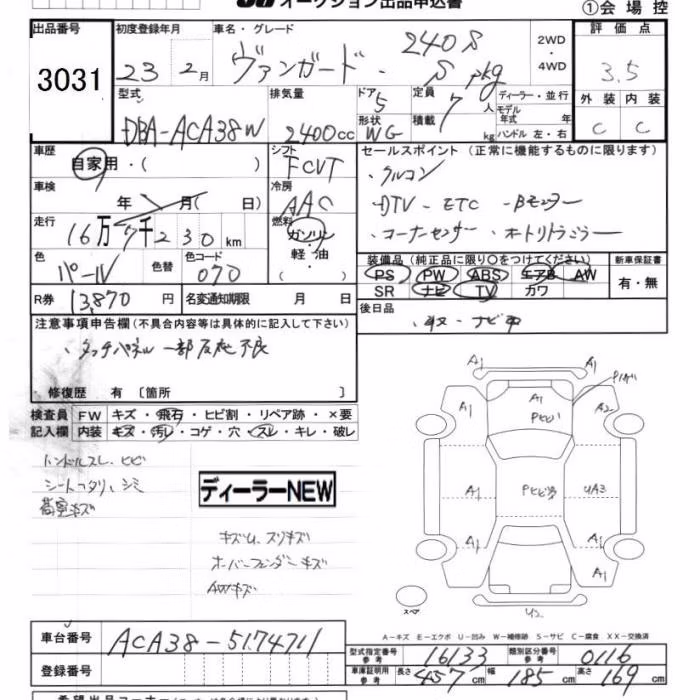 オークション出品申込書
①会場控
出品番号 初度登録年月 車名・グレード 評価点
3031
23年 2月 ヴァンガード 240S S pkg 2WD・4WD 3.5
型式 排気量 ドア 定員 ディーラー・並行 外装 内装
DBA-ACA38W 2400cc 5 7人 モデル年式 年 C C
形状 WG 積載 kg ハンドル 左・右
車歴 自家用・( ) シフト FCVT
セールスポイント (正常に機能するものに限ります)
・アルコン
車検 年 月( 日) 冷房 AAC
・DTV - ETC - Bモニター
走行 16万7千230km 燃料 ガソリン・軽油( )
・コーナーセンサー
色 パール 色替 色コード 070
装備品 (純正品に限り○をつけてください) 新車保証書
PS PW ABS エアB AW 有・無
SR ナビ TV カワ
R券 13,870円 名変通知期限 月 日
後日品
・ナビ
注意事項申告欄(不具合内容等は具体的に記入して下さい)
・タッチパネル 一部反応不良
・修復歴 有 〔箇所 〕
検査員記入欄 FW キズ・飛石・ヒビ割・リペア跡・×要
内装 キズ・汚レ・コゲ・穴・スレ・キレ・破レ
ハンドルスレ、ヒビ
シートヘタリ、シミ
荷室キズ
ディーラーNEW
キズU、スリキズ
オーバーフェンダーキズ
AWキズ
A1 A1
A1 A1 A2
A1 UA3
A1 A1
A1
スペア
A-キズ E-エクボ U-凹み W-補修跡 S-サビ C-腐食 XX-交換済
車台番号 ACA38-5174711
型式指定番号 参考 16133 類別区分番号 参考 0116
登録番号
車庫証明用 参考 長さ 457cm 幅 185cm 高さ 169cm